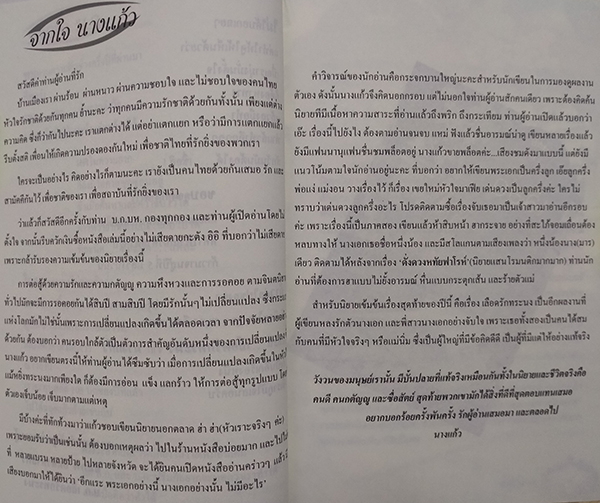 จากใจ นางแก้ว
สวัสดีค่ะท่านผู้อ่านที่รัก
บ้านเมืองเรา ผ่านร้อน ผ่านหนาว ผ่านความชอบใจ และไม่ชอบใจของคนไทย
หัวใจรักชาติด้วยกันทุกคน ย้ำนะคะ ว่าทุกคนมีความรักชาติด้วยกันทั้งนั้น เพียงแต่ต่าง
ความคิด ซึ่งก็ว่ากันไปนะคะ เราแตกต่างได้ แต่อย่าแตกแยก หรือว่ามีการแตกแยกแล้ว
รีบตั้งสติ เพื่อนให้เกิดความปรองดองกันใหม่ เพื่อชาติไทยที่รักยิ่งของพวกเรา
ใครจะเป็นอย่างไร คิดอย่างไรก็ตามนะคะ เรายังเป็นคนไทยด้วยกันเสมอ รัก และ
สามัคคีกันไว้ เพื่อชาติของเรา เพื่อสถาบันที่รักยิ่งของเรา
ว่าแล้วก็สวัสดีอีกครั้งกับท่าน บ.ก.บห. กองทุกกอง และท่านผู้เปิดอ่านโดยไม่
ตั้งใจ จากนั้นรีบควักเงินซื้อหนังสือเล่มนี้อย่างไม่เสียดายกะตัง อิอิ ที่บอกว่าไม่เสียดาย
เพราะกล้ารับรองความเข้มข้นของนิยายเรื่องนี้
การต่อสู้ด้วยความรักและความกตัญญู ความหึงหวงและการรอคอย ตามจินตนิยาย
ทั่วไปมักจะมีการรอคอยกันได้สิบปี สามสิบปี โดยมีรักนั้นๆ ไม่เปลี่ยนแปลง ซึ่งกระแส
แห่งโลกมักไม่ใช่นั้นเพราะการเปลี่ยนแปลงเกิดขึ้นได้ตลอดเวลา จากปัจจัยหลายอย่าง
ด้วยกัน ต้องบอกว่า คนรอบใกล้ตัวเป็นตัวการสำคัญอันดับหนึ่งของการเปลี่ยนแปลง
นางแก้ว อยากเขียนตรงนี้ให้ท่านผู้อ่านได้ซึมซับว่า เมื่อการเปลี่ยนแปลงเกิดขึ้นในหัวใจ
แม้หยิ่งทระนงมากเพียงใด ก็ต้องมีการอ่อน แข็ง แลกร้าว ให้การต่อสู้ทุกรูปแบบ โดย
ตัวเองเจ็บน้อย เจ็บมากตามแต่เหตุ
มีบ้างค่ะที่ทักท้วงมาว่าแก้วชอบเขียนนิยายนอกตลาด ฮ่า ฮ่า(หัวเราะจริงๆ ค่ะ)
เพราะยอมรับว่าเป็นเช่นนั้น ต้องบอกเหตุผลว่า ไปในร้านหนังสือบ่อยมาก และไป
ที่ หลายแบรน หลายป้าย ไปหลายจังหวัด จะได้ยินคนเปิดหนังสืออ่านคร่าวๆ แล้ว
เสียงบอกมาให้ได้ยินว่า "อีกแระ พระเอกอย่างนี้ นางเอกอย่างนั้น ไม่มีอะไร"
คำวิจารณ์ของนักอ่านคือกระจกบานใหญ่นะคะสำหรับนักเขียนในการมองดูผลงาน
ตัวเอง ดังนั้นนางแก้วจึงคิดนอกกรอบ แต่ไม่นอกใจท่านผู้อ่านสักคนเดียว เพราะต้องคิดค้น
นิยายที่มีเนื้อหาความสาระที่อ่านแล้วถึงพริก ถึงกระเทียม ท่านผู้อ่านเปิดแล้วบอกว่า
เอ๊ะ เรื่องนี้ไปยังไง ต้องตามอ่านจนจบ แหม่ ฟังแล้วชื่นอารมณ์น่าดู เขียนหลายเรื่องแล้ว
ยังมีแฟนนานุแฟนชื่นชมพล็อตอยู่ นางแก้วขายพล็อตค่ะ...เสียงชมดังมาแบบนี้ แต่ยังมี
แนวโน้มตามใจนักอ่านอยู่นะคะ ที่บอกว่า อยากให้เขียนพระเอกเป็นครึ่งลูก เอ๊ยลูกครึ่ง
พ่อแง่ แม่งอน วางเรื่องไว้ กี่เรื่อง เขยใหม่หัวใจมาเฟีย เด่นดวงเป็นลูกครึ่งค่ะ ใครไม่
ทราบว่าเด่นดวงลูกครึ่งอะไร โปรดติดตามชื่อเรื่องจับเธอมาเป็นเจ้าสาวมาอ่านอีกรอบ
ค่ะ เพราะเรื่องนี้เป็นภาคสอง เขียนแล้วห้าสิบหน้า ฮากระจาย อย่างที่สะใภ้จอมเถื่อนต้อง
หลบทางให้ นางเอกเธอชื่อหนึ่งน้อง และมีสโลแกนตามเสียงเพลงว่า หนึ่งน้องนาง(มาร)
เดียว ติดตามได้หลังจากเรื่อง 'ดั่งดวงหทัยฟาโรห์'(นิยายแสนโรมนติกมากมาก) ท่านนัก
อ่านที่ต้องการฮาแบบไม่ยั้งอารมณ์ หื่นแบบกระตุกเส้น และร้ายตัวแม่
สำหรับนิยายเข้มข้นเรื่องสุดท้ายของปีนี้ คือเรื่อง เลือดรักทระนง เป็นอีกผลงานที่
ผู้เขียนหลงรักตัวนางเอก และพี่สาวนางเอกอย่างจับใจ เพราะเธอทั้งสองเป็นคนได้สม
กับคนที่มีหัวใจจริงๆ หรือแม่นิ่ม ซึ่งเป็นผู้ใหญ่ที่มีข้อคิดดีดี เป็นผู้ที่มีแต่ให้อย่างแท้จริง
วังวนของมนุษย์เรานั้น มีบั้นปลายที่แท้จริงเหมือนกันทั้งในนิยายและชีวิตจริงคือ
คนดี คนกตัญญู และซื่อสัตย์ สุดท้ายพวกเขามักได้สิ่งที่ดีที่สุดตอบแทนเสมอ
อยากบอกร้อยครั้งพันครั้ง รักผู้อ่านเสมอมา และตลอดไป
นางแก้ว